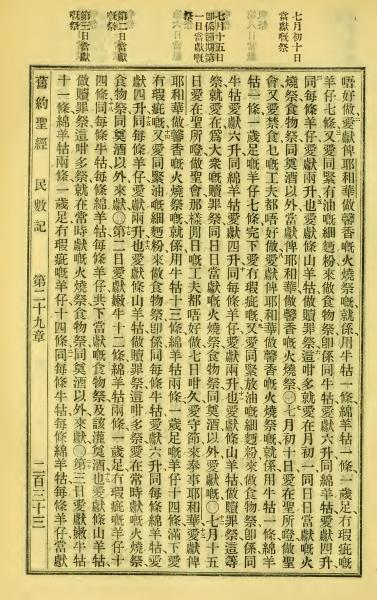 七月初十日
當獻嘅祭
七月十五日
卽係節期第
一日當獻嘅
祭
第二日當獻
嘅祭
第三日當獻
嘅祭
唔好做、愛獻俾耶和華做馨香嘅火燒祭、就係用牛牯一條、綿羊牯一條、一歲足有瑕疵嘅
羊仔七條、又愛獻同緊有油嘅細麵粉來做食物祭、卽係同牛牯愛獻六升、同綿羊牯愛獻四升、
同每條羊仔愛獻兩升、也愛獻條山羊牯做贖罪祭、這咁多就愛在月初一同日日當獻嘅火
燒祭食物祭同奠酒以外、當獻俾耶和華做馨香嘅火燒祭、〇七月初十日、愛在聖所噔做聖
會、又愛禁食、乜嘅工夫都唔好做、愛獻俾耶和華做馨香嘅火燒祭、就係用牛牯一條、綿羊
牯一條、一歲足嘅羊仔七條、完下愛有瑕疵嘅、又愛同緊放油嘅細麵粉來做食物祭、卽係同
牛牯愛獻六升、同綿羊牯愛獻四升、同每條羊仔愛獻兩升、也愛獻條山羊牯做贖罪祭、這等
祭就愛在爲大衆嘅贖罪祭、同日日當獻嘅火燒祭食物祭同奠酒以外愛獻嘅、〇七月十五
日、愛在聖所噔做聖會、那樣閒日嘅工夫都唔好做、七日咁久愛守節來奉事耶和華、愛獻俾
耶和華做馨香嘅火燒祭、就係用牛牯十三條、綿羊牯兩條、一歲足嘅羊仔十四條、滿下愛
有瑕疵嘅、又愛同緊油嘅細麵粉來做食物祭、卽係同每條牛牯愛獻六升、同每條綿羊牯愛
獻四升、同每條羊仔愛獻兩升、也愛獻條山羊牯做贖罪祭、這咁多祭愛在常時嘅獻火燒祭
食物祭同奠酒以外來獻、〇第二日愛獻嫩牛牯十二條、綿羊牯兩條、一歲足有瑕疵嘅羊仔十
四條、同每條牛牯每條綿羊牯每條羊仔、共下當獻嘅食物祭、及該灌奠酒、也愛獻條山羊牯
做贖罪祭、這咁多祭就在常時獻嘅火燒祭食物祭同奠酒以外來獻、〇第三日愛獻嫩牛牯
十一條、綿羊牯兩條、一歲足有瑕疵嘅羊仔十四條、同每條牛牯每條綿羊牯每條羊仔當獻
舊約聖經　民數記　第二十九章　二百三十三